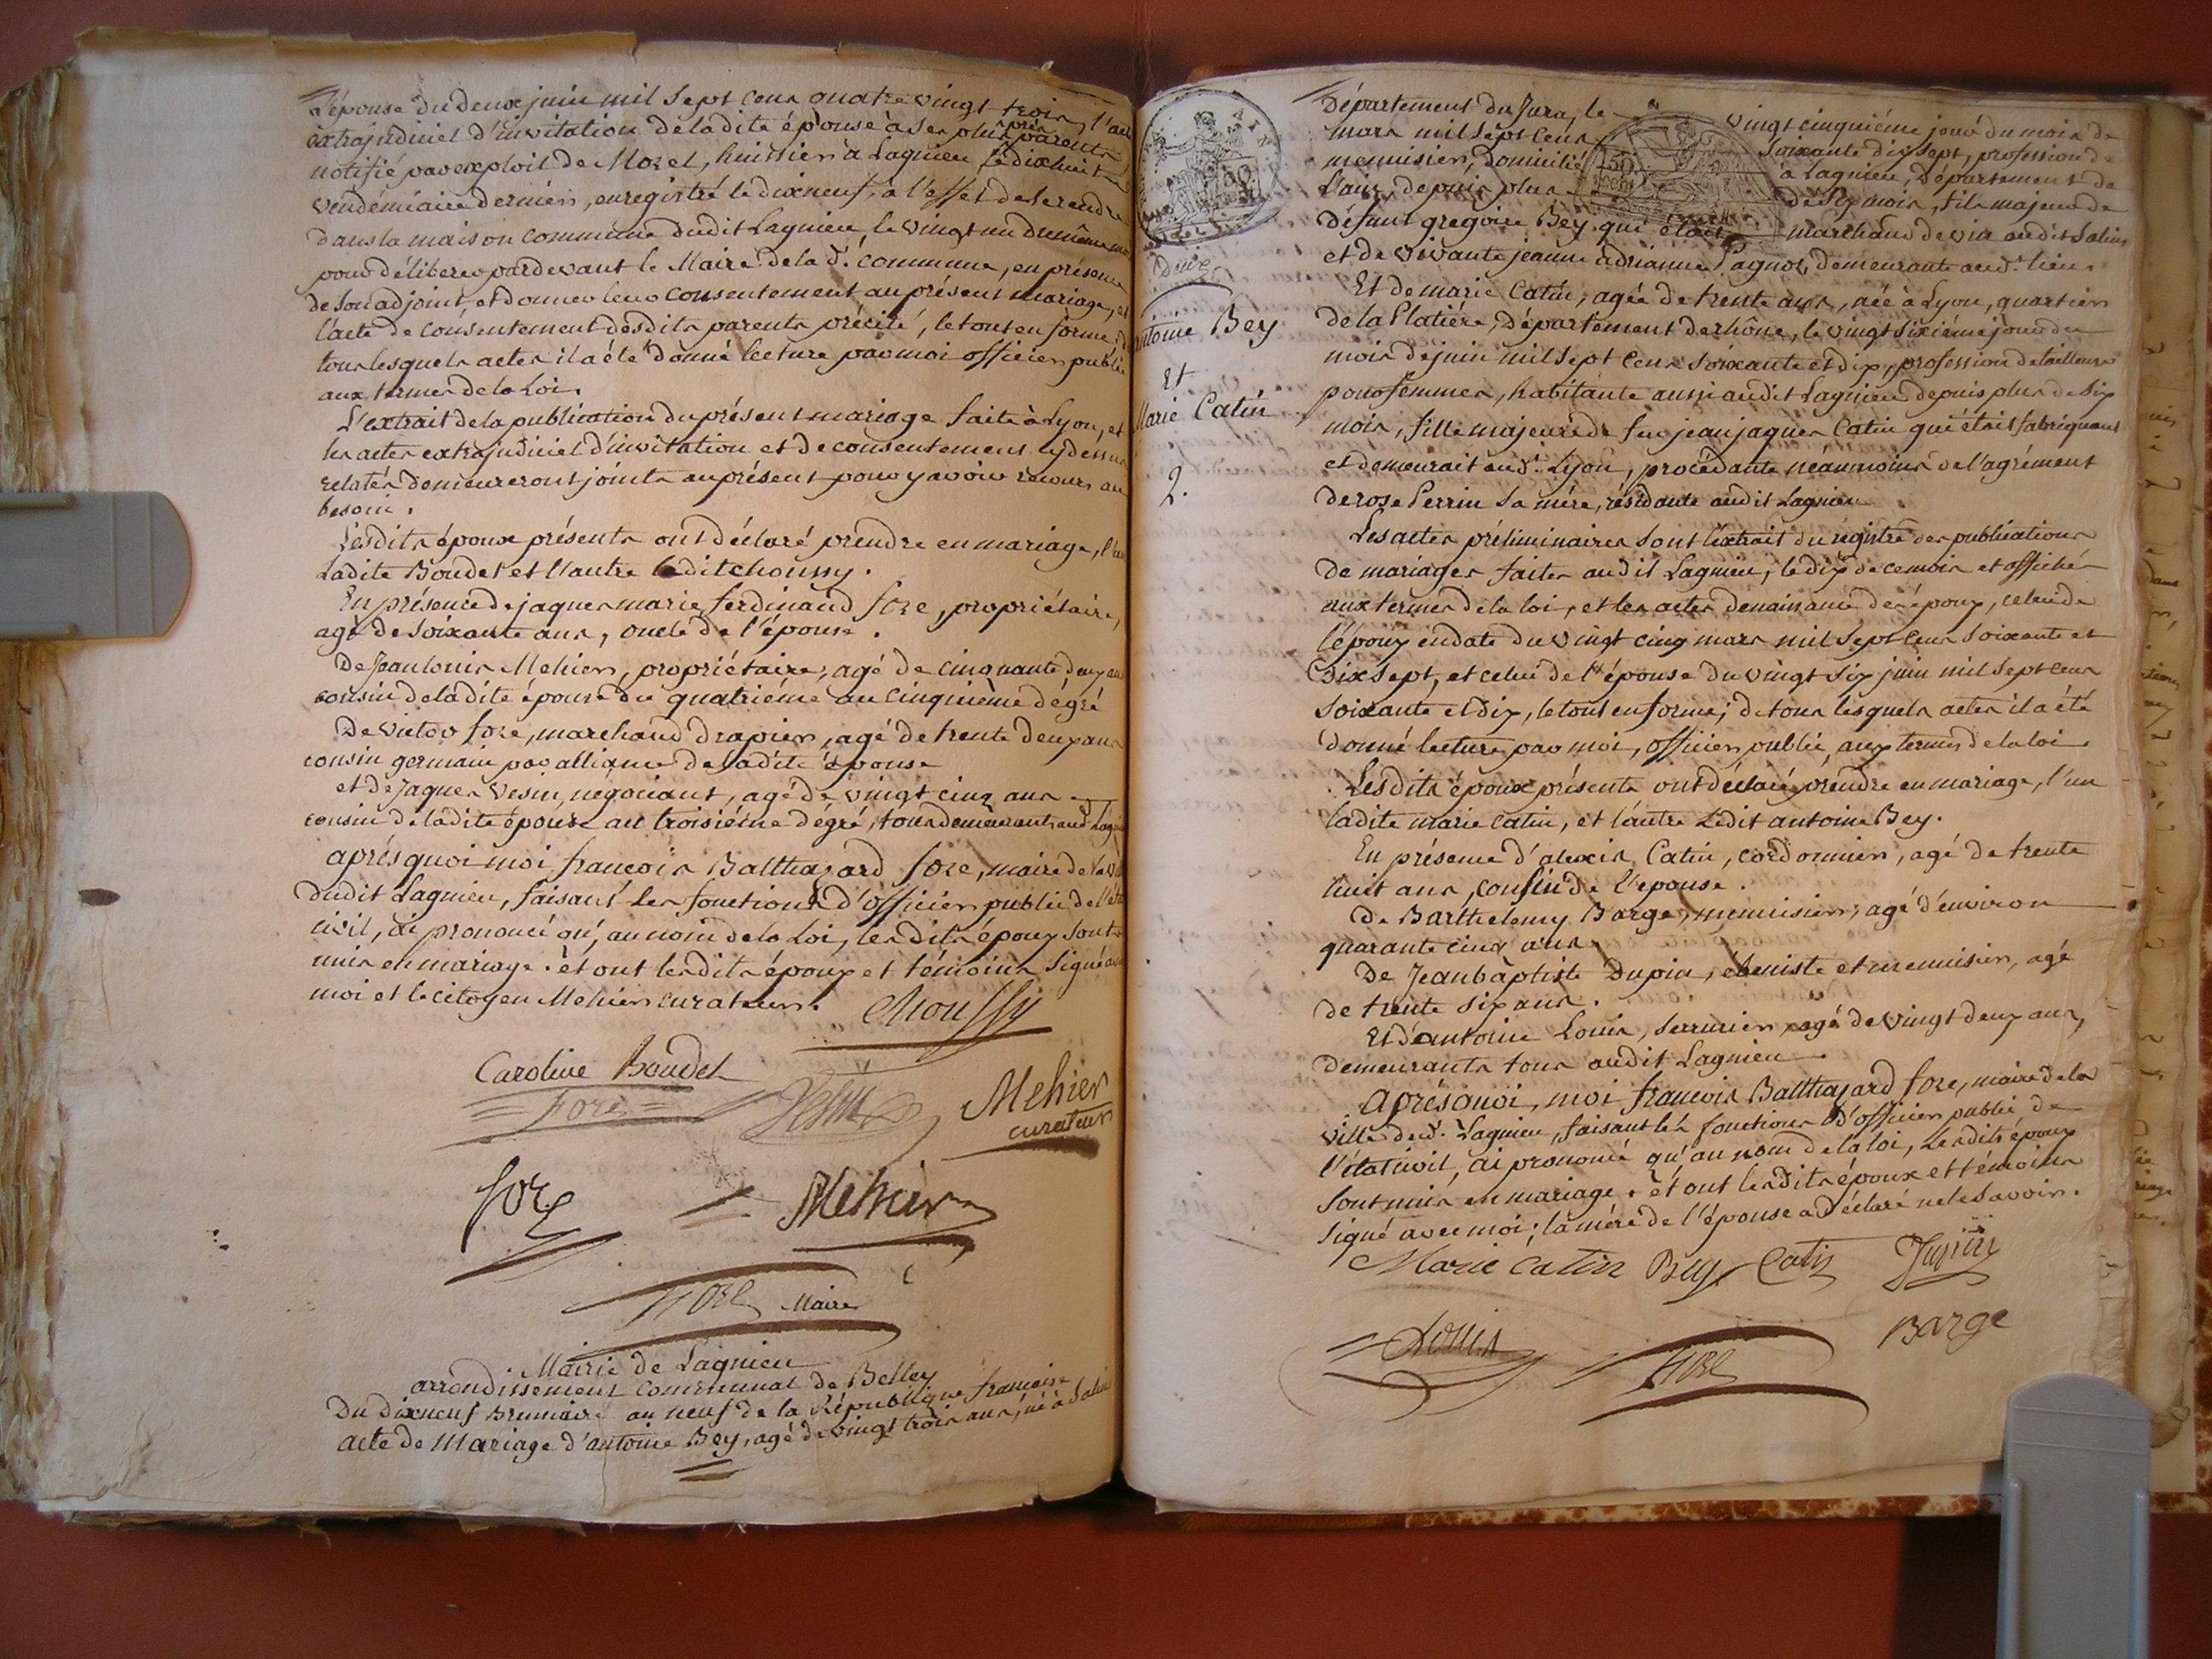 l'épouse du deux juin mil sept cent quatre vingt trois, l'acte
extrajudiciel d'invitation de la dite épouse à ses plus près parents
notifié par exploit de Morel, huissier à Lagnieu, le dixhuit
vendémiaire dernier, enregistré le dixneuf, à l'effet de se rendre
dans la maison commune dudit Lagnieu, le vingt un du même mois
pour délibérer pardevant le Maire de la d.e commune, en présence
de son adjoint, et donner leur consentement au présent mariage, et
l'acte de consentement desdits parents précité, le tout en forme, de
tous lesquels actes il a été donné lecture par moi officier public
aux termes de la Loi.
L'extrait de la publication du présent mariage faite à Lyon, et
les actes extrajudiciel d'invitation et de consentement cy dessus
relatés demeureront joints au présent pour y avoir recours au
besoin.
Lesdits époux présents ont déclaré prendre en mariage, l'un
Ladite Boudet et l'autre ledit choussy.
En présence de jaques marie ferdinand fore, propriétaire,
agé de soixante ans, oncle de l'épouse.
De Jean louis Mehier, propriétaire, agé de cinquante deux ans
cousin de ladite épouse du quatrième au cinquième dégré
De victor fore, marchand drapier, agé de trente deux ans
cousin germain par alliance de ladite épouse
et de jaques vesin, négociant, agé de vingt cinq ans
cousin de ladite épouse au troisiéme dégré, tous demeurant aud. Lagnieu
aprés quoi moi françois Balthazard fore, maire de la ville
dudit Lagnieu, faisant les fonctions d'officier public de l'état
civil, ai prononcé qu'au nom de la Loi, lesdits époux sont
unis en mariage. et ont lesdits époux et témoins signé avec
moi et le citoyen Mehier curateur.
Choussy
Caroline Boudet
Fore
Vesin
Mehier
curateur
fore
Mehier
Fore Maire
Mairie de Lagnieu
arrondissement communal de Belley
Du dixneuf Brumaire an neuf de la République française
acte de Mariage d'antoine Bey, agé de vingt trois ans, né à Salins
Département du Jura, le vingt cinquiéme jour du mois de
mars mil sept cent soixante dix sept, profession de
menuisier, domicilié à Lagnieu, Département de
l'ain, depuis plus de six mois, fils majeur de
défunt gregoire Bey qui était marchand de vin audit Salins
et de vivante jeanne adrianne Pagnot, demeurante aud.t lieu
Et de marie Catin, agée de trente ans, née à Lyon, quartier
de la Platière, Département du rhône, le vingt sixiéme jour du
mois de juin mil sept cent soixante et dix, profession de tailleuse
pour femmes, habitante aussi audit Lagnieu depuis plus de six
mois, fille majeure de feu jean jaques Catin qui était fabriquant
et demeurait aud.t Lyon, procédante néanmoins de l'agrément
de rose Perrin sa mére, résidante audit Lagnieu
Les actes préliminaires sont l'extrait du registre des publications
de mariages faites audit Lagnieu, le dix de ce mois et affichés
aux termes de la loi, et les actes de naissance des époux, celui de
l'époux en date du vingt cinq mars mil sept cent soixante et
dix sept, et celui de l'épouse du vingt six juin mil sept cent
soixante et dix, le tout en forme; de tous lesquels actes il a été
donné lecture par moi, officier public, aux termes de la loi
Lesdits époux présents ont déclaré prendre en mariage, l'un
ladite marie catin, et l'autre ledit antoine Bey.
En présence d'alexis Catin, cordonnier, agé de trente
huit ans, cousin de l'épouse.
De Barthelemy Barge, menuisier, agé d'environ
quarante cinq ans
De Jean baptiste Dupin, ébeniste et menuisier, agé
de trente six ans.
Et d'antoine Louis, serrurier, agé de vingt deux ans,
demeurants tous audit Lagnieu
Aprés quoi, moi françois Balthazard fore, maire de la
ville dud.t Lagnieu, faisant les fonctions d'officier public de
l'état civil, ai prononcé qu'au nom de la loi, lesdits époux
sont unis en mariage. et ont lesdits époux et témoins
signé avec moi; la mére de l'épouse a déclaré ne le savoir.
Marie catin Bey Catin Dupin
Louis
Fore
Barge
antoine Bey
Et
Marie Catin
2.